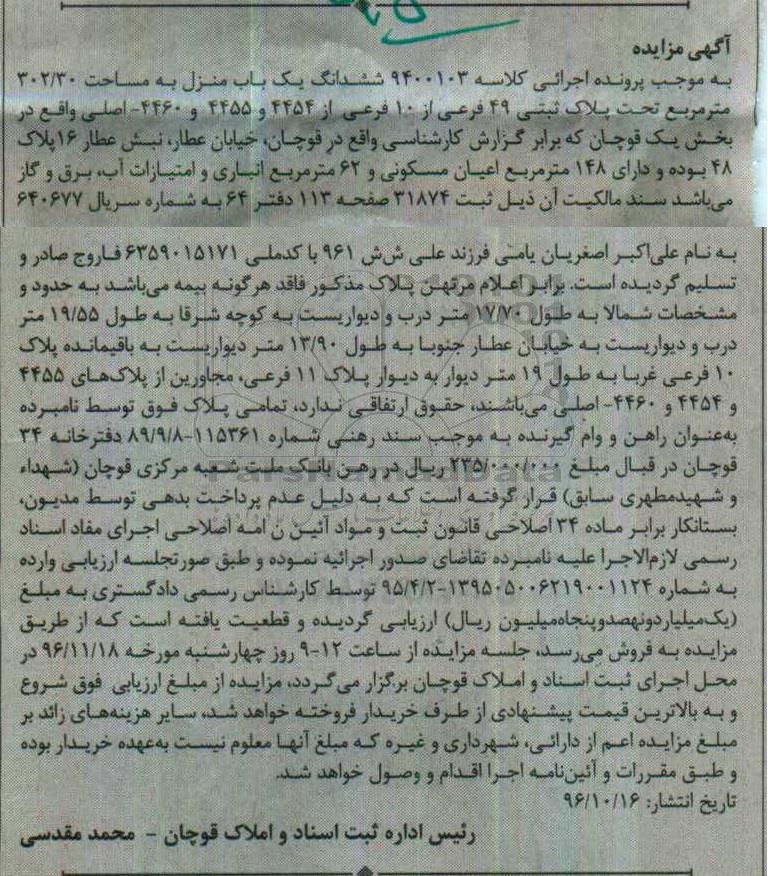 آگهی مزایده
به موجب پرونده اجرائی کلاسه ۹۴۰۰۱۰۳ ششدانگ یک باب منزل به مساحت ۳۰۲/۳۰
مترمربع تحت پلاک ثبتی ۴۹ فرعی از ۱۰ فرعی از ۴۴۵۴ و ۴۴۵۵ و ۴۴۶۰- اصلی واقع در
بخش یک قوچان که برابر گزارش کارشناسی واقع در قوچان، خیابان عطار، نبش عطار ۱۶پلاک
۴۸ بوده و دارای ۱۴۸ مترمربع اعیان مسکونی و ۶۲ مترمربع انباری و امتیازات آب، برق و گاز
می‌باشد سند مالکیت آن ذیل ثبت ۳۱۸۷۴ صفحه ۱۱۳ دفتر ۶۴ به شماره سریال ۶۴۰۶۷۷
به نام علی‌اکبر اصغریان یامی فرزند علی ش‌ش ۹۶۱ با کدملی ۶۳۵۹۰۱۵۱۷۱ فاروج صادر و
تسلیم گردیده است. برابر اعلام مرتهن پلاک مذکور فاقد هرگونه بیمه می‌باشد به حدود و
مشخصات شمالا به طول ۱۷/۷۰ متر درب و دیواریست به کوچه شرقا به طول ۱۹/۵۵ متر
درب و دیواریست به خیابان عطار جنوبا به طول ۱۳/۹۰ متر دیواریست به باقیمانده پلاک
۱۰ فرعی غربا به طول ۱۹ متر دیوار به دیوار پلاک ۱۱ فرعی، مجاورین از پلاک‌های ۴۴۵۵
و ۴۴۵۴ و ۴۴۶۰- اصلی می‌باشند، حقوق ارتفاقی ندارد، تمامی پلاک فوق توسط نامبرده
به‌عنوان راهن و وام گیرنده به موجب سند رهنی شماره ۱۱۵۳۶۱-۸۹/۹/۸ دفترخانه ۳۴
قوچان در قبال مبلغ ۲۳۵/۰۰۰/۰۰۰ ریال در رهن بانک ملت شعبه مرکزی قوچان (شهداء
و شهیدمطهری سابق) قرار گرفته است که به دلیل عدم پرداخت بدهی توسط مدیون،
بستانکار برابر ماده ۳۴ اصلاحی قانون ثبت و مواد آئین ن امه اصلاحی اجرای مفاد اسناد
رسمی لازم‌الاجرا علیه نامبرده تقاضای صدور اجرائیه نموده و طبق صورتجلسه ارزیابی وارده
به شماره ۱۳۹۵۰۵۰۰۶۲۱۹۰۰۱۱۲۴-۹۵/۴/۲ توسط کارشناس رسمی دادگستری به مبلغ
(یک‌میلیاردونهصدوپنجاه‌میلیون ریال) ارزیابی گردیده و قطعیت یافته است که از طریق
مزایده به فروش می‌رسد، جلسه مزایده از ساعت ۱۲-۹ روز چهارشنبه مورخه ۹۶/۱۱/۱۸ در
محل اجرای ثبت اسناد و املاک قوچان برگزار می‌گردد، مزایده از مبلغ ارزیابی فوق شروع
و به بالاترین قیمت پیشنهادی از طرف خریدار فروخته خواهد شد، سایر هزینه‌های زائد بر
مبلغ مزایده اعم از دارائی، شهرداری و غیره که مبلغ آنها معلوم نیست به‌عهده خریدار بوده
و طبق مقررات و آئین‌نامه اجرا اقدام و وصول خواهد شد.
تاریخ انتشار: ۹۶/۱۰/۱۶
رئیس اداره ثبت اسناد و املاک قوچان - محمد مقدسی